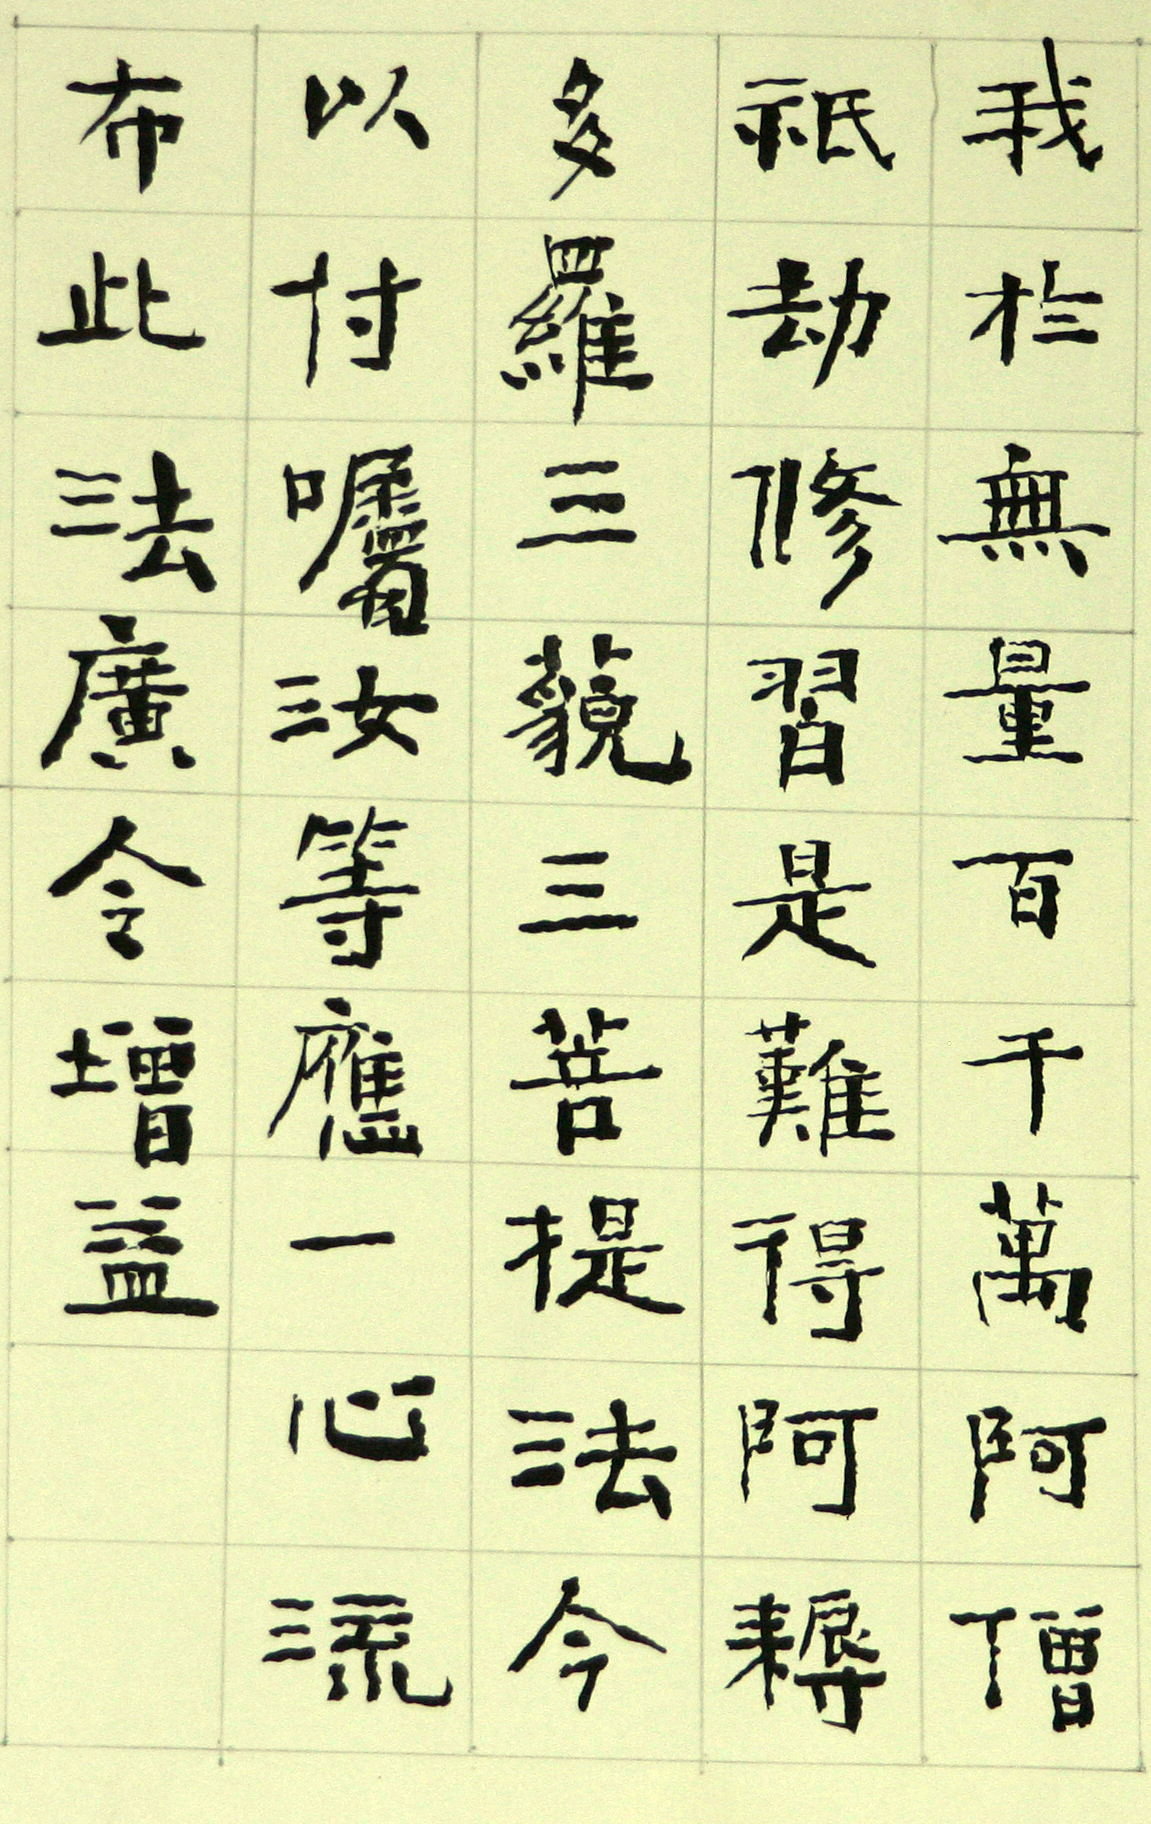 我於無量百千萬阿僧
祇劫修習是難得阿耨
多羅三藐三菩提法今
以付囑汝等應一心流
布此法廣令增益